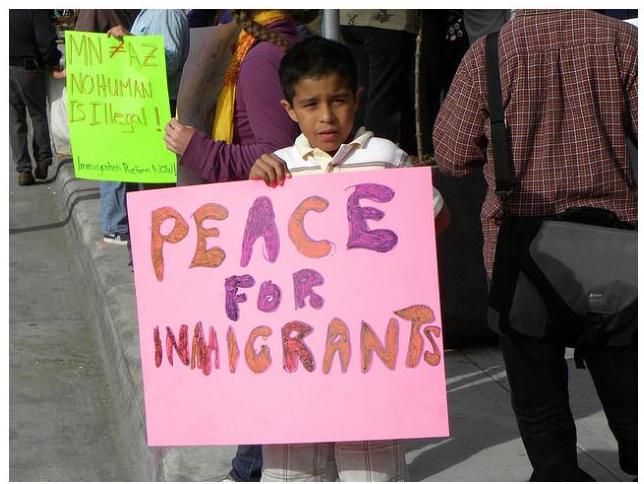 MN ≠ AZ
NO HUMAN
IS Illegal!
Immigration Reform NOW!
PEACE
FOR
INMIGRANTS